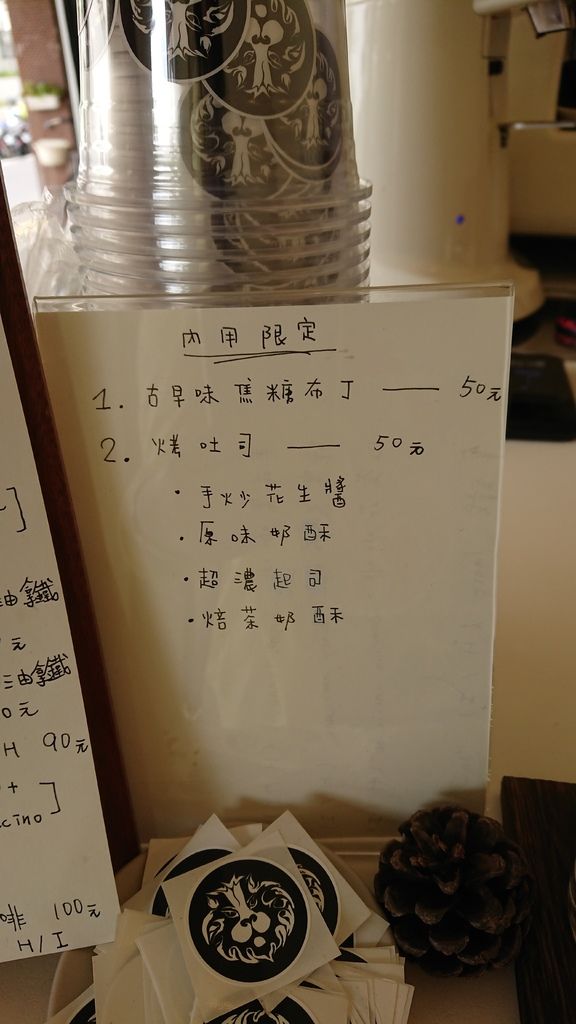 內用限定
1. 古早味焦糖布丁 —— 50元
2. 烤吐司 —— 50元
・手炒花生醬
・原味奶酥
・超濃起司
・焙茶奶酥
]
油拿鐵
元
三油拿鐵
0元
H 90元
+ ]
ccino
啡 100元
H/I